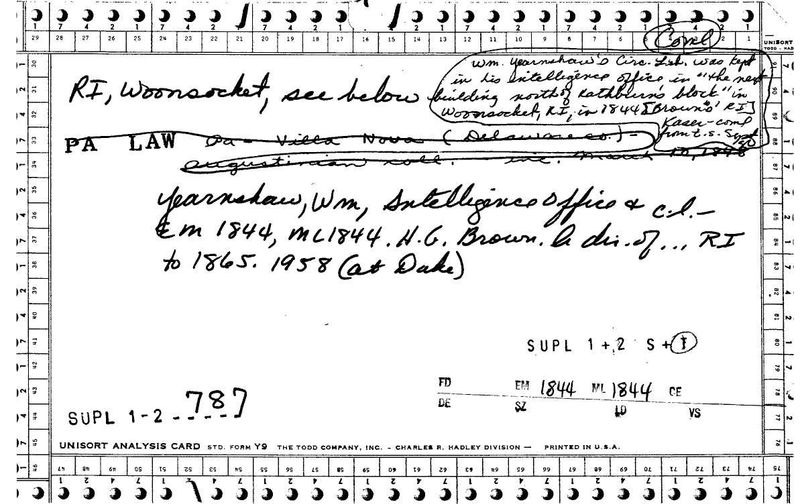 Coml
Wm. Yearnshaw's Circ. Lib. was kept
in his intelligence office in "the next
building north of Rathburn's block" in
Woonsocket, RI, in 1844 [Brown's RI]
Kaser-coml
from
RI, Woonsocket, see below
PA LAW Pa - Villa Nova (Delaware co.) -
augustinian coll. inc. March 10, 1848
Yearnshaw, Wm, Intelligence Office & c.l.-
Em 1844, ML 1844. H.G. Brown. A dir. of... RI
to 1865. 1958 (at Duke)
SUPL 1+2 S+
FD EM 1844 ML 1844 CE
DE SZ LD VS
SUPL 1-2 - 787
UNISORT ANALYSIS CARD STD. FORM Y9 THE TODD COMPANY, INC. - CHARLES R. HADLEY DIVISION - PRINTED IN U.S.A.
UNISORT